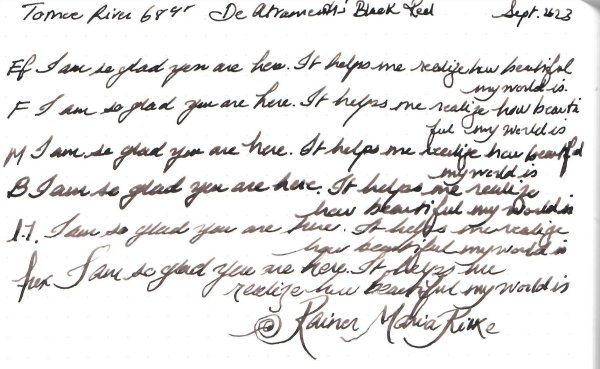 Tomoe River 68gr De Atramentis' Black Red Sept. 2023
EF I am so glad you are here. It helps me realize how beautiful
my world is.
F I am so glad you are here. It helps me realize how beauti
ful my world is
M I am so glad you are here. It helps me realize how beautiful
my world is
B I am so glad you are here. It helps me realize
how beautiful my world is
1.1. I am so glad you are here. It helps me realize
how beautiful my world is
flex I am so glad you are here. It helps me
realize how beautiful my world is
© Rainer Maria Rilke